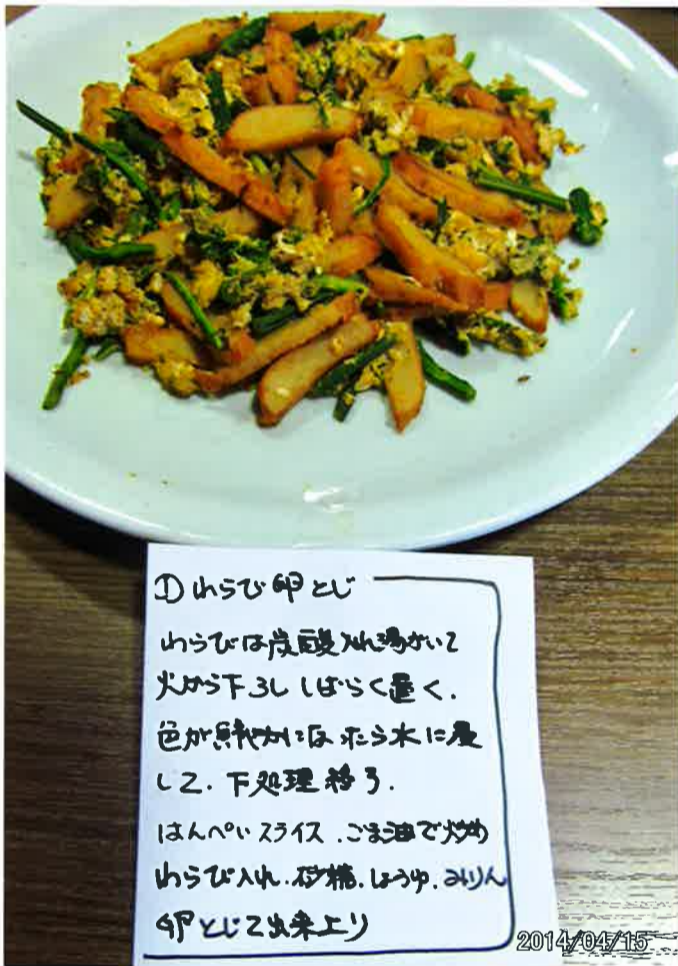 ① わらび卵とじ
わらびは炭酸入れ湯がいて
火から下ろししばらく置く.
色が鮮やかになったら水に浸
して.下処理終了.
はんぺいスライス.ごま油で炒め
わらび入れ.砂糖.しょうゆ.みりん
卵とじで出来上り
2014/04/15